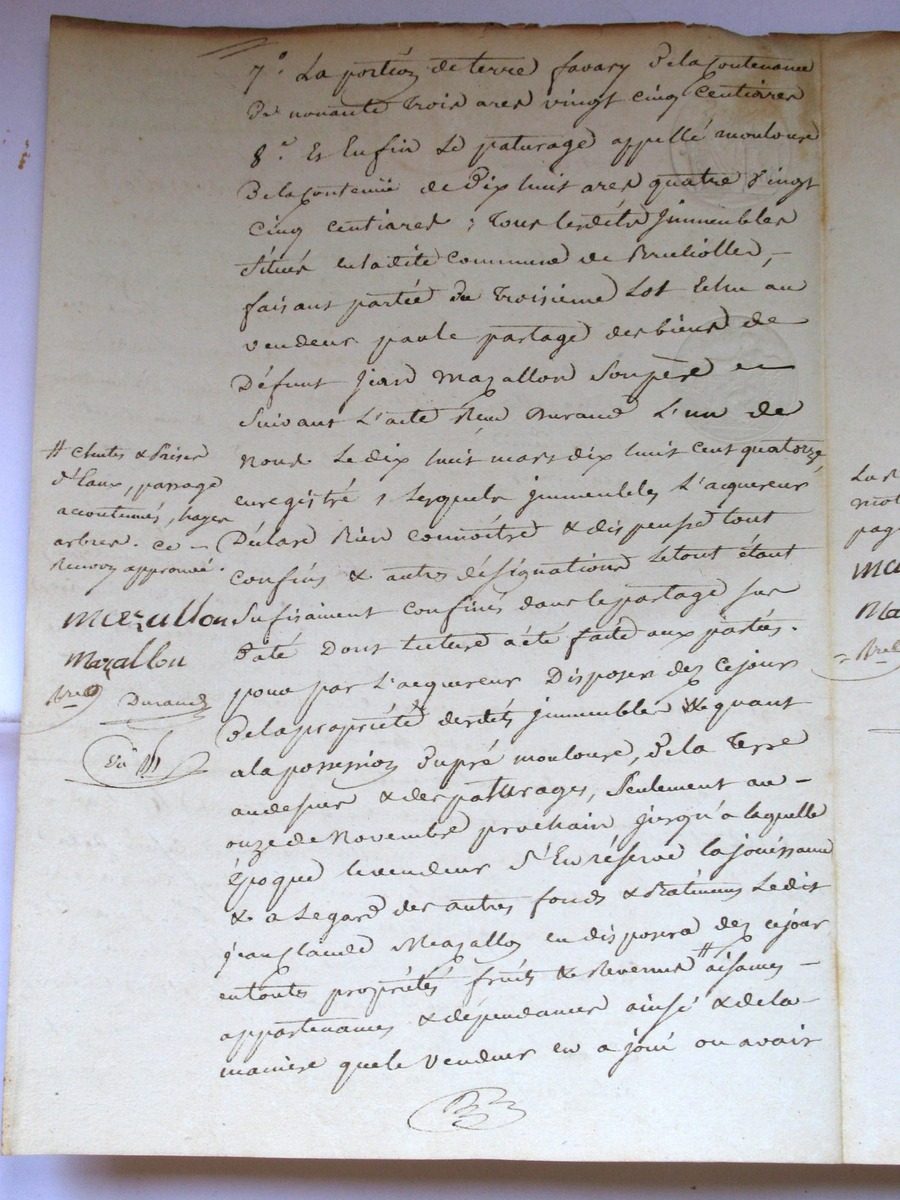 7° La portion de terre favary De la Contenance
De nonante Trois ares vingt cinq Centiares
8° Et Enfin Le paturage appellé mouloure
De la Contenüe de Dix huit ares quatre Vingt
Cinq Centiares ; Tous lesdits Immeubles
Situés en ladite Commune de Brullioles, –
faisant partie du Troisième Lot Echu au
vendeur par le partage des biens de
Défunt Jean Mazallon Son père en
Suivant L'acte Reçu Durand L'un de
nous Le dix huit mars dix huit Cent quatorze,
enregistré, Lesquels immeubles L'acquereur
Déclare Bien Connoitre & dispense tout
Confins & autres désignations Le tout étant
Sufisament Confinés dans le partage sus
Daté Dont lecture a été faite aux parties.
pour par L'acquereur Disposer dez Ce jour
De la propriété desdits immeubles & quant
a la possession Du pré mouloure, De la Terre
au dessus & des paturages, Seulement au –
onze de Novembre prochain jusqu'a laquelle
époque le vendeur S'En réserve la jouissance
& a Legard des autres fonds & Batimens Ledit
jean Claude Mazallon en disposera dez cejour
en toutes propriétés fruits & Revenus # aisances –
appartenances & dépendances ainsi & de la –
manière que le Vendeur en a joui ou avait
# Chutes & Prises
d'Eaux, passage
accoutumés, hayes
arbres. Ce –
Renvoy approuvé.
Mazallon
Mazallon
Durand
Las
mot
pag
Ma
Ma